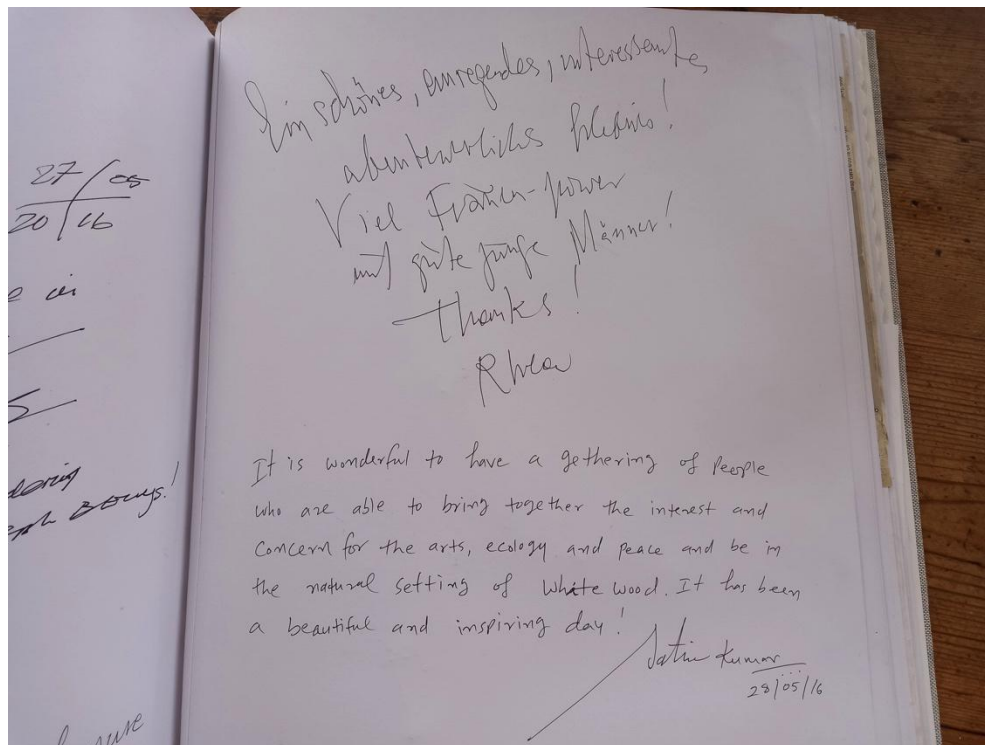 27/05
20/16
Ein schönes, anregendes, interessantes,
abenteuerliches Erlebnis!
Viel Frauen-power
und gute junge Männer!
Thanks!
Rhea
It is wonderful to have a gethering of People
who are able to bring together the interest and
Concern for the arts, ecology and peace and be in
the natural setting of White wood. It has been
a beautiful and inspiring day!
Satish Kumar
28/05/16